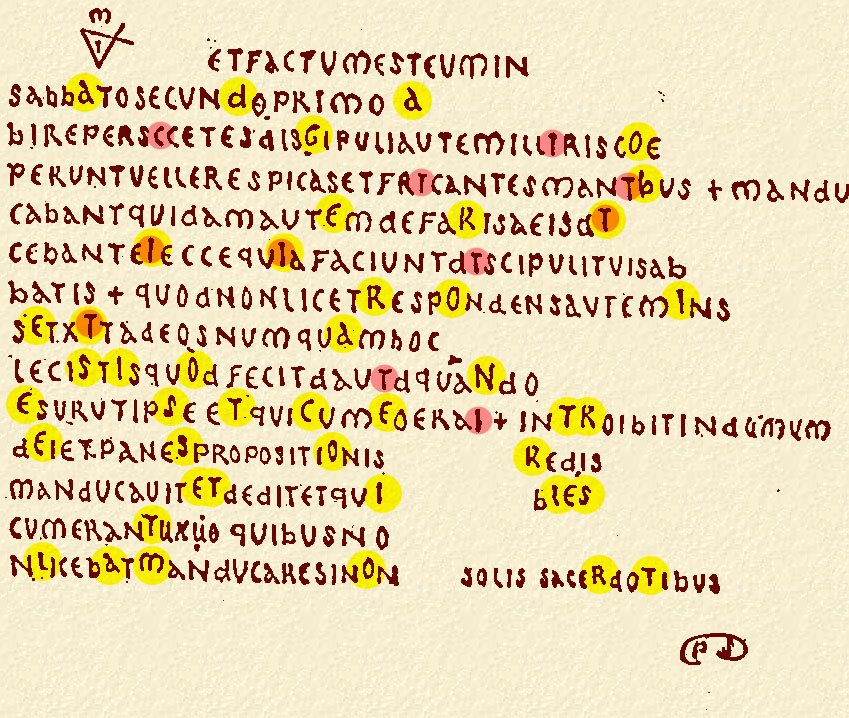 M
I
ETFACTUMESTEUMIN
SAbbATOSECUNdOPRIMO A
bIREPERSCCETESdISGIPULIAUTEMILLTRISCOE
PERUNTVELLERESPICASETFRTCANTESMANTbUS + MANdU
CAbANTQUIdAMAUTEMdEFARISAEISdT
CEbANTEIECCEQUIAFACIUNTdTSCIPULITUISAb
bATIS + QUOdNONLICETRESPONdENSAUTEMINS
SETXTTAdEOSNUMQUAMhOC
LECISTISQUOdFECITdAUTdQUANdO
ESURUTIPSEETQUICUMEOERAI + INTROIbITINdUMUM
dEIETPANESPROPOSITIONIS REdIS
MANdUCAUITETdEdITETQUI bLES
CUMERANTUXUO QUIbUSNO
NLICEbATMANdUCARESINON SOLIS SACERdOTIbUS
PS